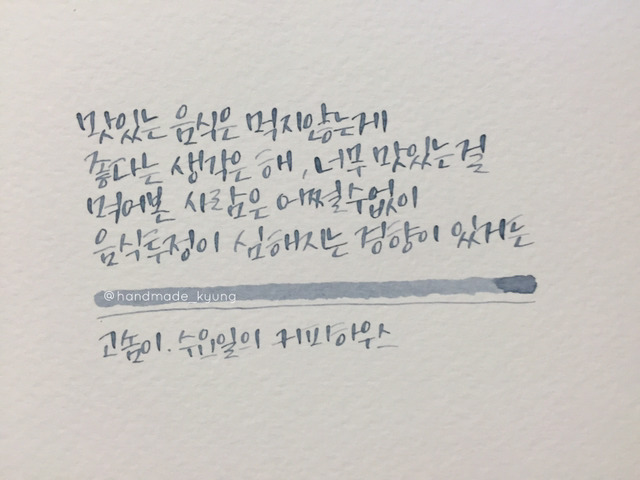 맛있는 음식은 먹지않는게
좋다는 생각은 해, 너무 맛있는걸
먹어본 사람은 어쩔수없이
음식투정이 심해지는 경향이 있거든
@handmade_kyung
고솜이. 수요일의 커피하우스